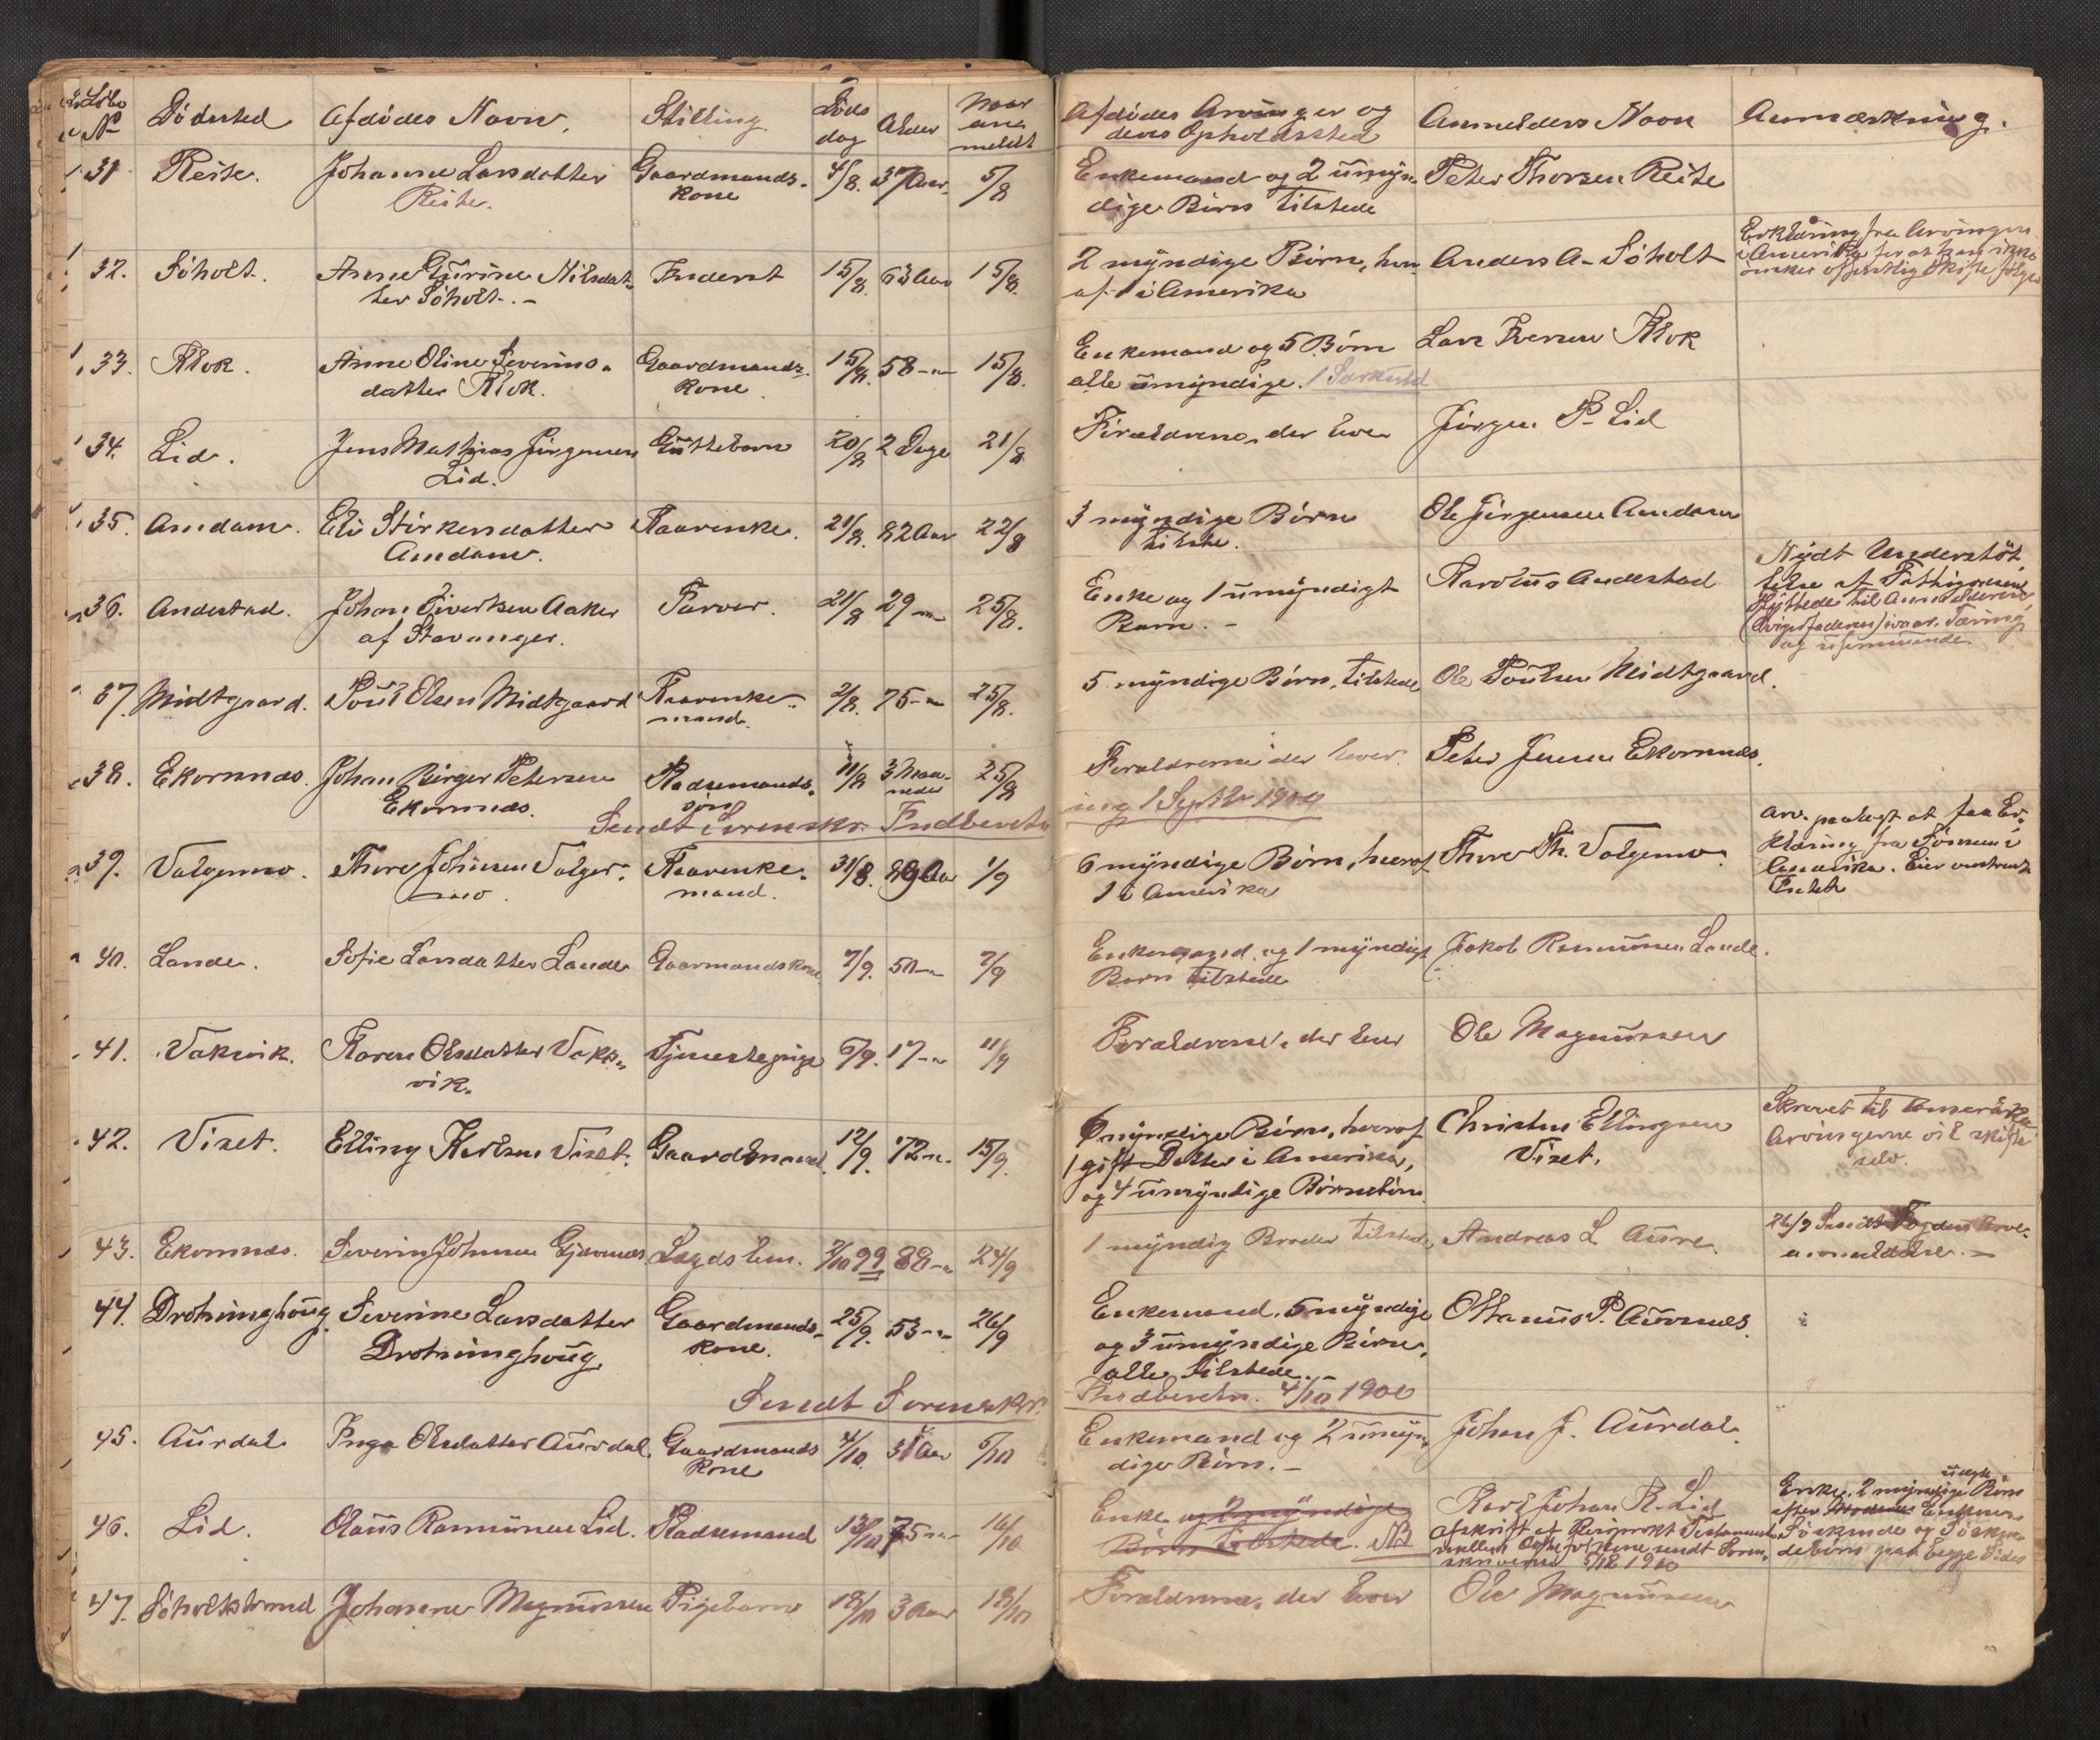 Löbe
No
Dödssted
Afdödes Navn.
Stilling.
Döds
dag
Alder
Naar
an-
meldt
Afdödes Arvinger og
deres Opholdssted
Anmelders Navn
Anmærkning.
31
Reite.
Johanne Larsdatter
Reite.
Gaardmands-
kone
4/8.
37 Aar
5/8
Enkemand og 2 umyn-
dige Börn tilstede
Peter Thorsen Reite
32.
Söholt.
Anne Gurine Nilsdat-
ter Söholt. -
Inderst
15/8.
63 Aar
15/8.
2 myndige Börn, her-
af 1 i Amerika
Anders A. Söholt
Erklæring fra Arvingen
i Amerika for at han ikke
önsker offentlig Skifte fölger
33.
Klok.
Anne Oline Severins-
datter Klok.
Gaardmands-
kone.
15/8.
58 - "
15/8.
Enkemand og 5 Börn
alle umyndige. 1 Særkuld
Lars Iversen Klok
34.
Lid.
Jens Mathias Jörgensen
Lid.
Guttebarn
20/8
2 Dage
21/8
Forældrene, der lever
Jörgen P. Lid
35.
Amdam.
Eli Störkersdatter
Amdam.
Kaarenke.
21/8.
82 Aar
22/8
3 myndige Börn
tilste.
Ole Jörgensen Amdam
36.
Andestad.
Johan Sivertsen Aaker
af Stavanger.
Farver.
21/8
29 - "
25/8.
Enke og 1 umyndigt
Barn. -
Karolus Andestad
Nydt Understöt-
telse af Fattigvæsenet
flyttede til Anmelderen
(Svigerfaderen) ivaar. Tæring
og uformuende
37.
Midtgaard.
Poul Olsen Midtgaard
Kaarenke-
mand.
2/8.
75 - "
25/8.
5 myndige Börn, tilstede
Ole Poulsen Midtgaard.
38.
Ekornnes.
Johan Birger Petersen
Ekornnes.
Pladsemands-
sön
11/8
3 Maa-
neder
25/8
Forældrerne der lever.
Peter Jensen Ekornnes.
Sendt Sorenskr. Indberetn
ing 1 Septbr 1900
39.
Valgermo.
Thore Johnsen Valger-
mo.
Kaarenke-
mand.
31/8.
89 Aar
1/9
6 myndige Börn, hvoraf
1 i Amerika
Thore Th. Valgermo.
Arv. paalagt at faa Er-
klæring fra Sönnen i
Amerika. Eier omtrent
Intet
40.
Lande.
Sofie Larsdatter Lande
Gaarmandskone
7/9.
50 - "
7/9
Enkemand og 1 myndigt
Barn tilstede
Jakob Rasmussen Lande.
41.
Vaksvik.
Karen Olsdatter Vaks-
vik.
Tjenestepige
6/9.
17 - "
11/9
Forældrene, der lever
Ole Magnussen
42.
Viset.
Elling Karlsen Viset.
Gaardmand.
12/9.
72 - "
15/9.
6 myndige Börn, hvoraf
1 gift Datter i Amerika,
og 4 umyndige Börnebörn.
Christen Ellingsen
Viset.
Skrevet til
Arvingerne vil skifte
selv.
43.
Ekornnes.
Severin Johnsen Gjævenes
Lægdslem.
2/10 99
88 - "
24/9
1 myndig Broder tilstede
Andreas L Aure.
26/9 Sendt Fogden Arve-
anmeldelse. -
44.
Drotninghoug.
Severine Larsdatter
Drotninghoug
Gaardmands-
kone.
25/9.
53 - "
26/9
Enkemand, 5 myndige
og 3 umyndige Börn,
alle Tilstede. -
Ottanus P. Aursnes.
Sendt Sorenskr.
Indberetn. 4/10 1900
45.
Aurdal
Inga Olsdatter Aurdal.
Gaardmands
kone
4/10.
31 Aar
5/10
Enkemand og 2 umyn-
dige Börn. -
Johan J. Aurdal.
46.
Lid.
Olaus Rasmussen Lid.
Pladsemand
13/10
75 - "
16/10
Enke og 2 myndige
Börn tilstede. NB
Karl Johan K. Lid
Afskrift af Resiprokt Testament
mellem Ægtefolkene sendt Soren-
skriveren 5/12 1900
Enke, 2 myndige uægte Börn
efter Enken
Söskende og Söskn-
debörn paa begge Sider
47.
Söholtstrand
Johanne Magnussen
Pigebarn
18/10
3 Aar
19/10
Forældrene, der lever
Ole Magnussen